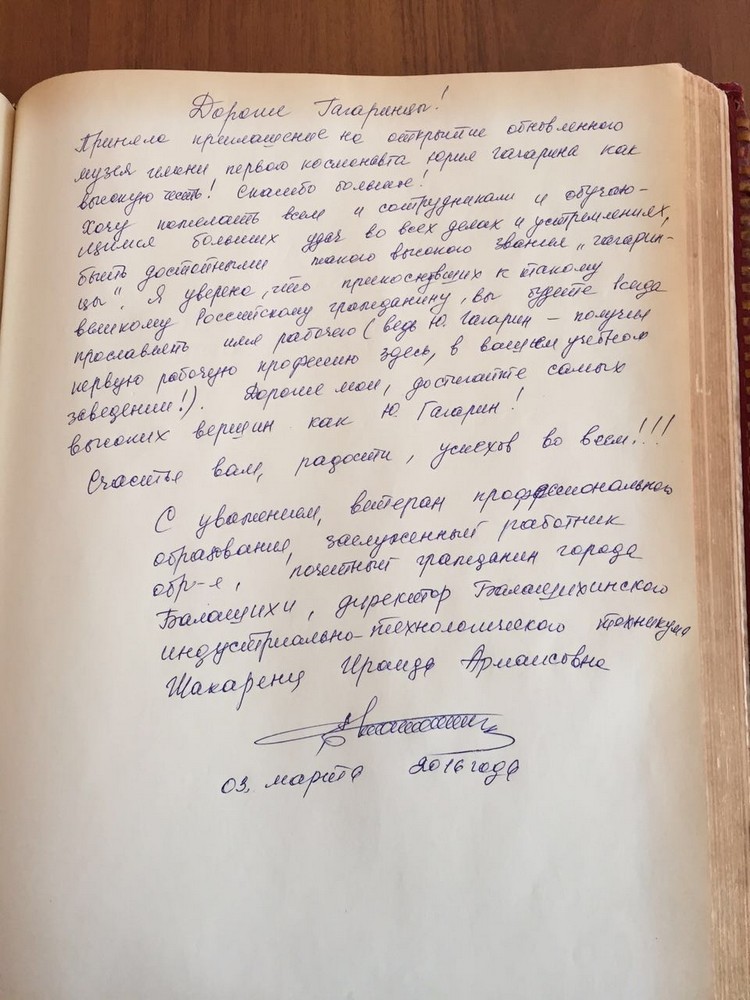 Дорогие Гагаринцы!
Приняла приглашение на открытие обновленного
музея имени первого космонавта Юрия Гагарина как
высокую честь! Спасибо большое!
Хочу пожелать всем и сотрудникам и обучаю-
щимся больших удач во всех делах и устремлениях,
быть достойными такого высокого звания „гагарин-
цы". Я уверена, что прикоснувших к такому
великому Российскому гражданину, вы будете всегда
прославлять имя рабочего (ведь Ю. Гагарин – получил
первую рабочую профессию здесь, в вашем учебном
заведении!). Дорогие мои, достигайте самых
высоких вершин как Ю. Гагарин!
Счастья вам, радости, успехов во всем!!!
С уважением, ветеран профессионального
образования, заслуженный работник
обр-я, почетный гражданин города
Балашихи, директор Балашихинского
индустриально-технологического техникума
Шакаренц Ираида Армаисовна
03. марта 2016 года